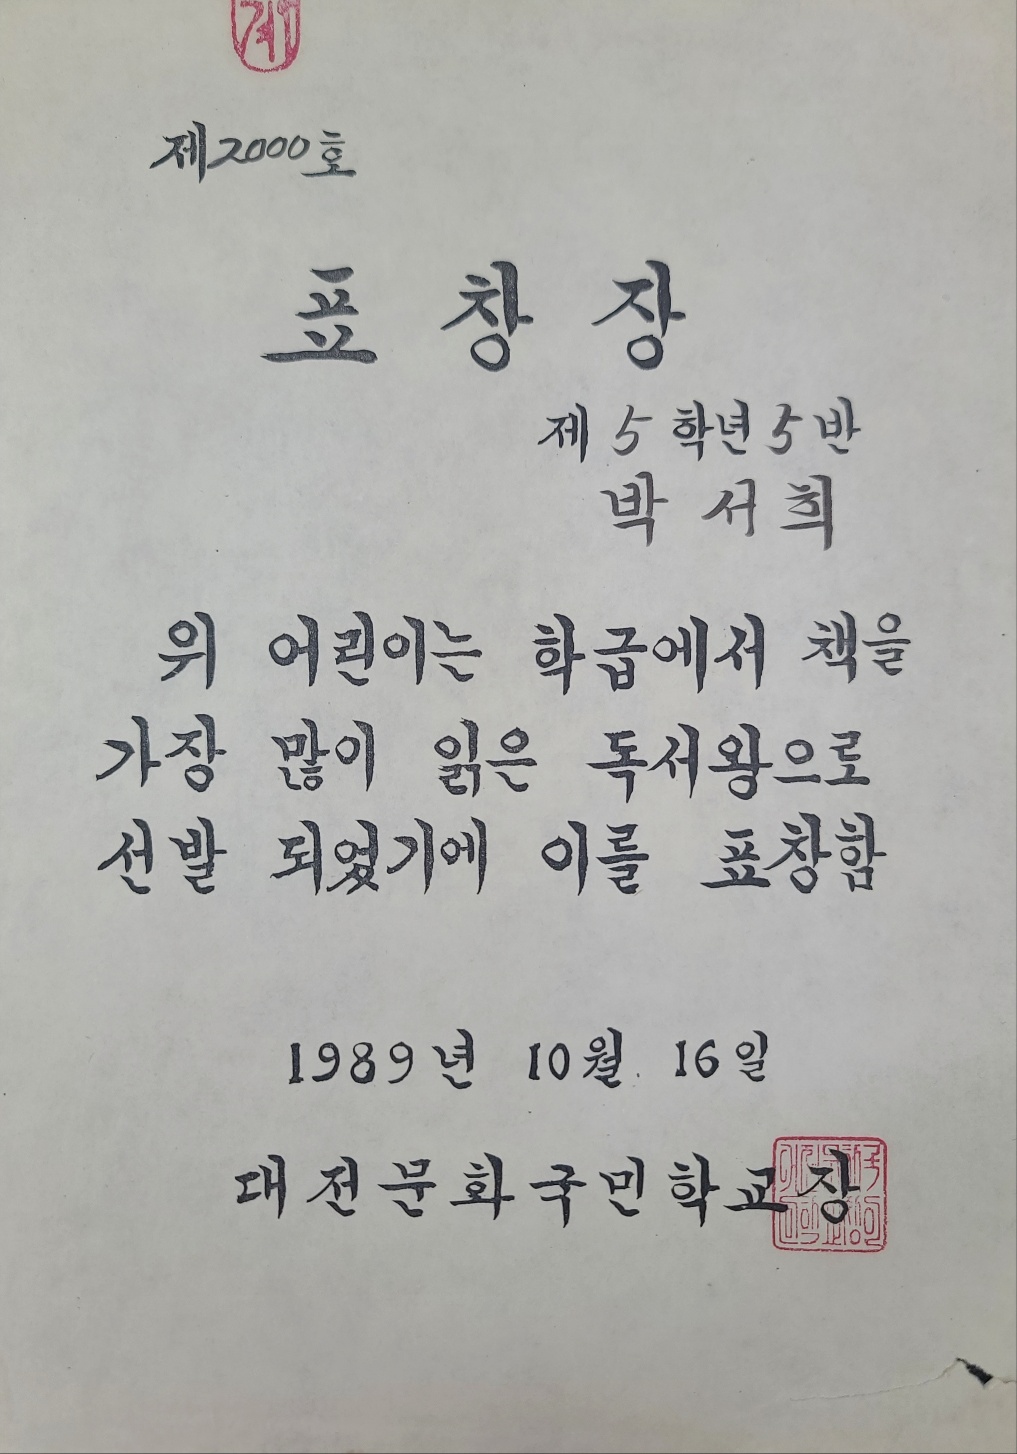 계
제2000호
표 창 장
제 5 학년 5 반
박 서 희
위 어린이는 학급에서 책을
가장 많이 읽은 독서왕으로
선발 되었기에 이를 표창함
1989년 10월 16일
대전문화국민학교장